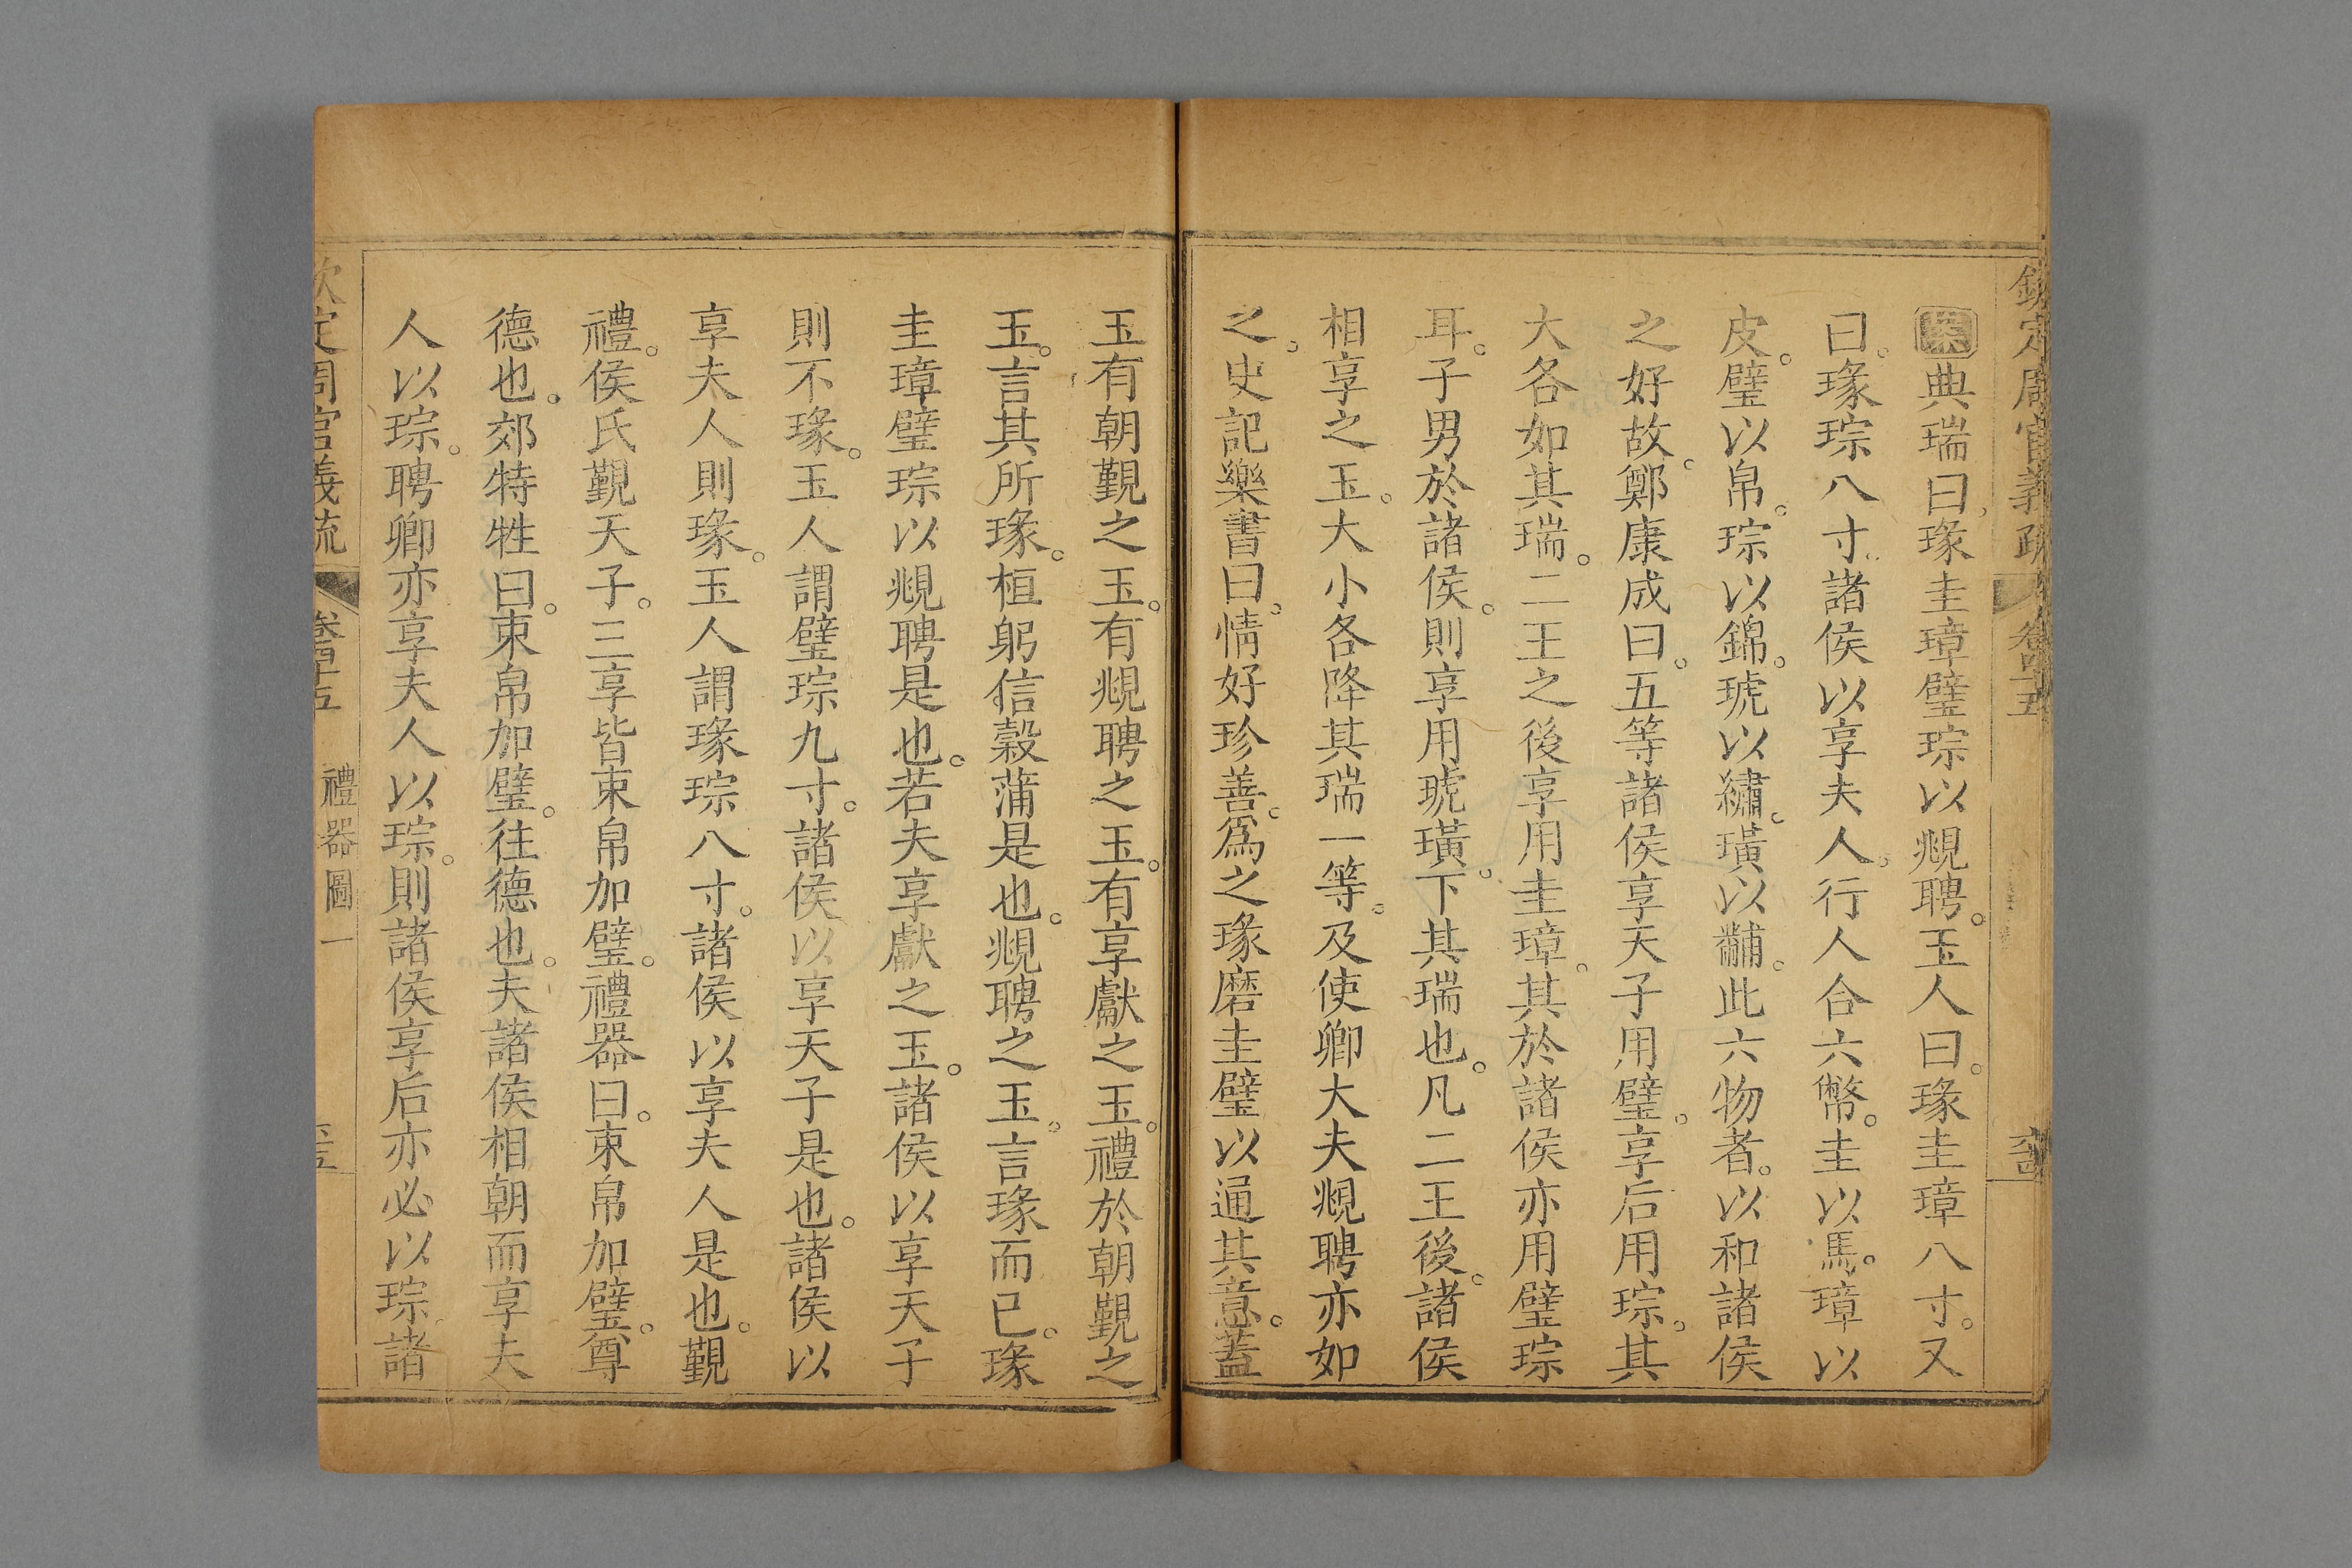 欽定周官義疏 卷四十五
案典瑞曰瑑圭璋璧琮以覜聘。玉人曰。瑑圭璋八寸。又
曰。瑑琮八寸。諸侯以享夫人。行人合六幣。圭以馬。璋以
皮。璧以帛。琮以錦。琥以繡。璜以黼。此六物者。以和諸侯
之好故。鄭康成曰。五等諸侯享天子用璧。享后用琮。其
大各如其瑞。二王之後享用圭璋。其於諸侯亦用璧琮
耳。子男於諸侯。則享用琥璜。下其瑞也。凡二王後。諸侯
相享之玉。大小各降其瑞一等。及使卿大夫覜聘亦如
之。史記樂書曰。情好珍善。爲之瑑磨圭璧以通其意。蓋
玉有朝覲之玉。有覜聘之玉。有享獻之玉。禮於朝覲之
玉。言其所瑑。桓躬信穀蒲是也。覜聘之玉。言瑑而已。瑑
圭璋璧琮以覜聘是也。若夫享獻之玉。諸侯以享天子
則不瑑。玉人謂璧琮九寸。諸侯以享天子是也。諸侯以
享夫人則瑑。玉人謂瑑琮八寸。諸侯以享夫人是也。覲
禮。侯氏覲天子。三享皆束帛加璧。禮器曰。束帛加璧。尊
德也。郊特牲曰。束帛加璧。往德也。夫諸侯相朝而享夫
人以琮。聘卿亦享夫人以琮。則諸侯享后亦必以琮。諸
欽定周官義疏 卷四十五 禮器圖一